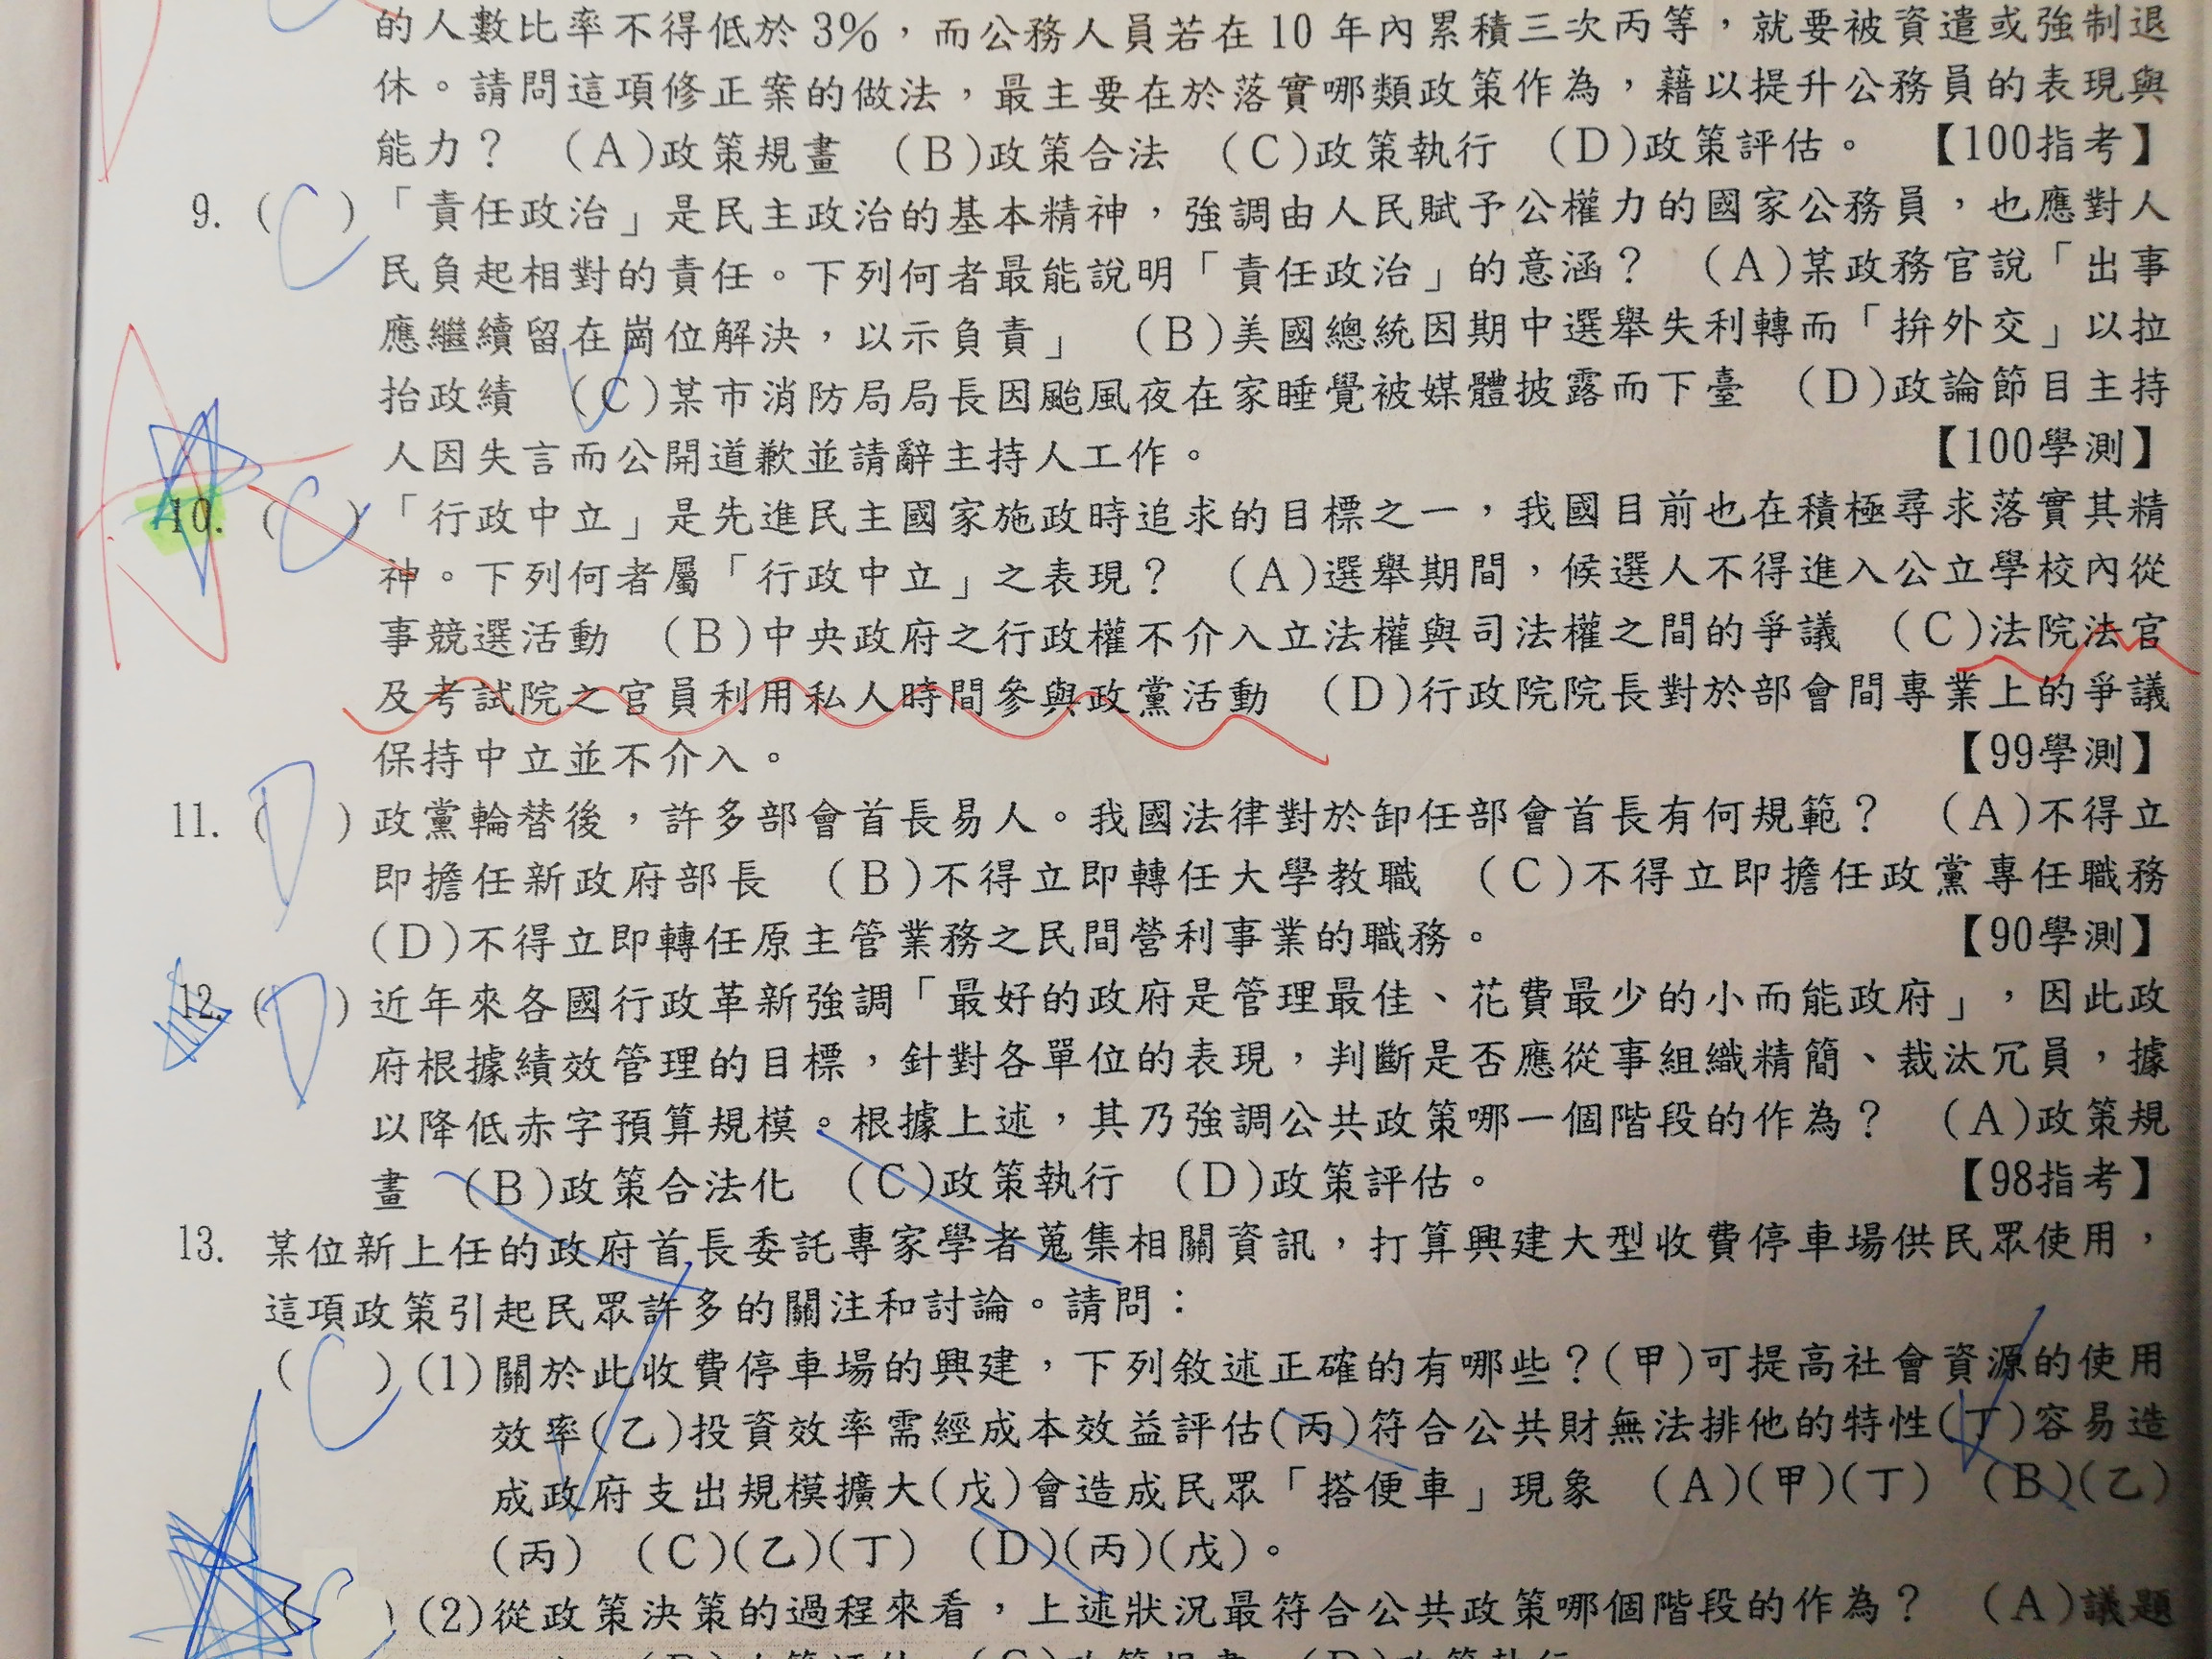 的人數比率不得低於3%，而公務人員若在10年內累積三次丙等，就要被資遣或強制退
休。請問這項修正案的做法，最主要在於落實哪類政策作為，藉以提升公務員的表現與
能力？ (A)政策規畫 (B)政策合法 (C)政策執行 (D)政策評估。 【100指考】
9. ( C )「責任政治」是民主政治的基本精神，強調由人民賦予公權力的國家公務員，也應對人
民負起相對的責任。下列何者最能說明「責任政治」的意涵？ (A)某政務官說「出事
應繼續留在崗位解決，以示負責」 (B)美國總統因期中選舉失利轉而「拚外交」以拉
抬政績 (C)某市消防局局長因颱風夜在家睡覺被媒體披露而下臺 (D)政論節目主持
人因失言而公開道歉並請辭主持人工作。 【100學測】
10. ( C )「行政中立」是先進民主國家施政時追求的目標之一，我國目前也在積極尋求落實其精
神。下列何者屬「行政中立」之表現？ (A)選舉期間，候選人不得進入公立學校內從
事競選活動 (B)中央政府之行政權不介入立法權與司法權之間的爭議 (C)法院法官
及考試院之官員利用私人時間參與政黨活動 (D)行政院院長對於部會間專業上的爭議
保持中立並不介入。 【99學測】
11. ( D )政黨輪替後，許多部會首長易人。我國法律對於卸任部會首長有何規範？ (A)不得立
即擔任新政府部長 (B)不得立即轉任大學教職 (C)不得立即擔任政黨專任職務
(D)不得立即轉任原主管業務之民間營利事業的職務。 【90學測】
12. ( D )近年來各國行政革新強調「最好的政府是管理最佳、花費最少的小而能政府」，因此政
府根據績效管理的目標，針對各單位的表現，判斷是否應從事組織精簡、裁汰冗員，據
以降低赤字預算規模。根據上述，其乃強調公共政策哪一個階段的作為？ (A)政策規
畫 (B)政策合法化 (C)政策執行 (D)政策評估。 【98指考】
13. 某位新上任的政府首長委託專家學者蒐集相關資訊，打算興建大型收費停車場供民眾使用，
這項政策引起民眾許多的關注和討論。請問：
( C )(1)關於此收費停車場的興建，下列敘述正確的有哪些？(甲)可提高社會資源的使用
效率(乙)投資效率需經成本效益評估(丙)符合公共財無法排他的特性(丁)容易造
成政府支出規模擴大(戊)會造成民眾「搭便車」現象 (A)(甲)(丁) (B)(乙)
(丙) (C)(乙)(丁) (D)(丙)(戊)。
( C )(2)從政策決策的過程來看，上述狀況最符合公共政策哪個階段的作為？ (A)議題